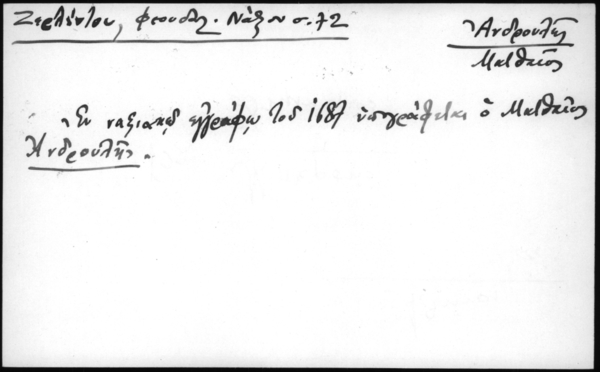 Ζερλέντου, Φεουδλ. Νάξου σ. 72
Ἀνδρουλῆς
Ματθαῖος
Ἐν ναξιακῷ ἐγγράφῳ τοῦ 1687 ὑπογράφεται ὁ Ματθαῖος
Ἀνδρουλῆς.